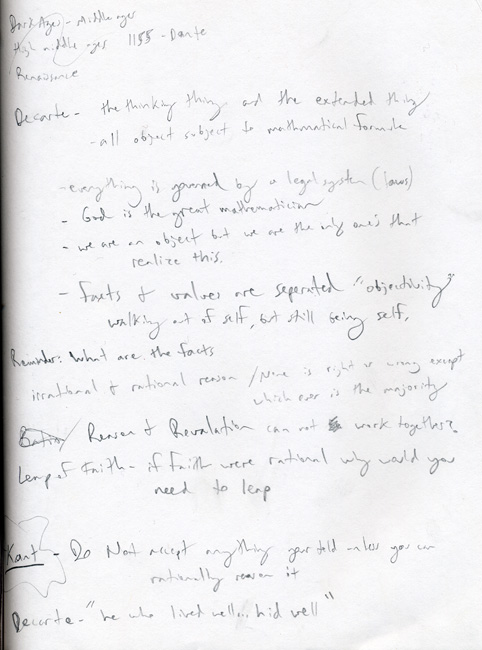 Dark Ages - Middle ages
High middle ages 1155 - Dante
Renaissance
Decarte - the thinking thing and the extended thing
- all object subject to mathematical formula
- everything is governed by a legal system (laws)
- God is the great mathematician
- we are an object but we are the only one's that
realize this.
- Facts & values are seperated "objectivity"
walking out of self, but still being self.
Reminder: What are the facts
irrational & rational reason / None is right or wrong except
which ever is the majority
Reason & Revalation can not work together?
Leap of Faith - if faith were rational why would you
need to leap
Kant - Do Not accept anything your told unless you can
rationally reason it
Decarte - "he who lived well... hid well"